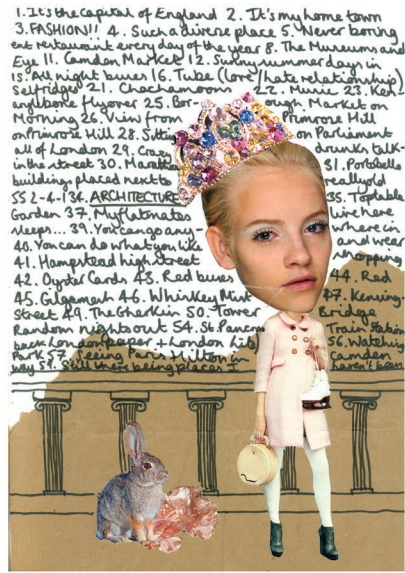 1. It's the capital of England 2. It's my home town
3. FASHION!! 4. Such a diverse place 5. Never boring
ent restaurant every day of the year 8. The Museums and
Eye 11. Camden Market 12. Sunny summer days in
15. All night buses 16. Tube (love/hate relationship)
Selfridges 21. 22. Music 23. Ken-
flyover 25. Bor- ough Market on
Morning 26. View from Primrose Hill
on Primrose Hill 28. Sitting on Parliament
all of London 29. Crazy drunks talk-
in the street 30. 31. Portobello
building placed next to really old
34. ARCHITECTURE 35. Toptable
Garden 37. My flatmates live here
sleeps... 39. You can go any- where in
40. You can do what you like and wear
41. Hampstead high street shopping
42. Oyster Cards 43. Red buses 44. Red
45. Gilgamesh 46. Whiskey Mist 47. Kensing-
Street 49. The Gherkin 50. Tower Bridge
Random nights out 54. St. Pancras Train Station
back London paper + London Lite 56. Watching
Park 57. Seeing Paris Hilton in Camden
way 59. Still there being places I haven't been